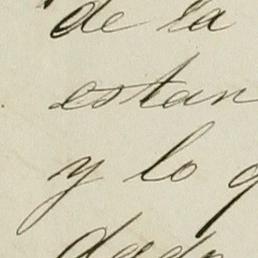 de la
estan
y lo q
dado